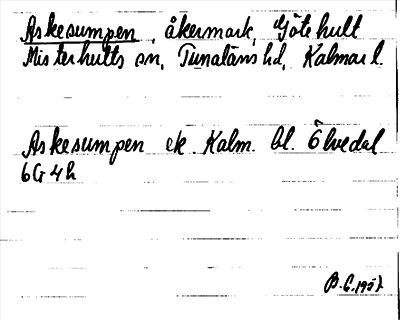 Askesumpen, åkermark, Götehult
Misterhults sn, Tunaläns hd, Kalmar l.
Askesumpen ek. Kalm. bl. Ölvedal
6G4h
B.E. 1957.